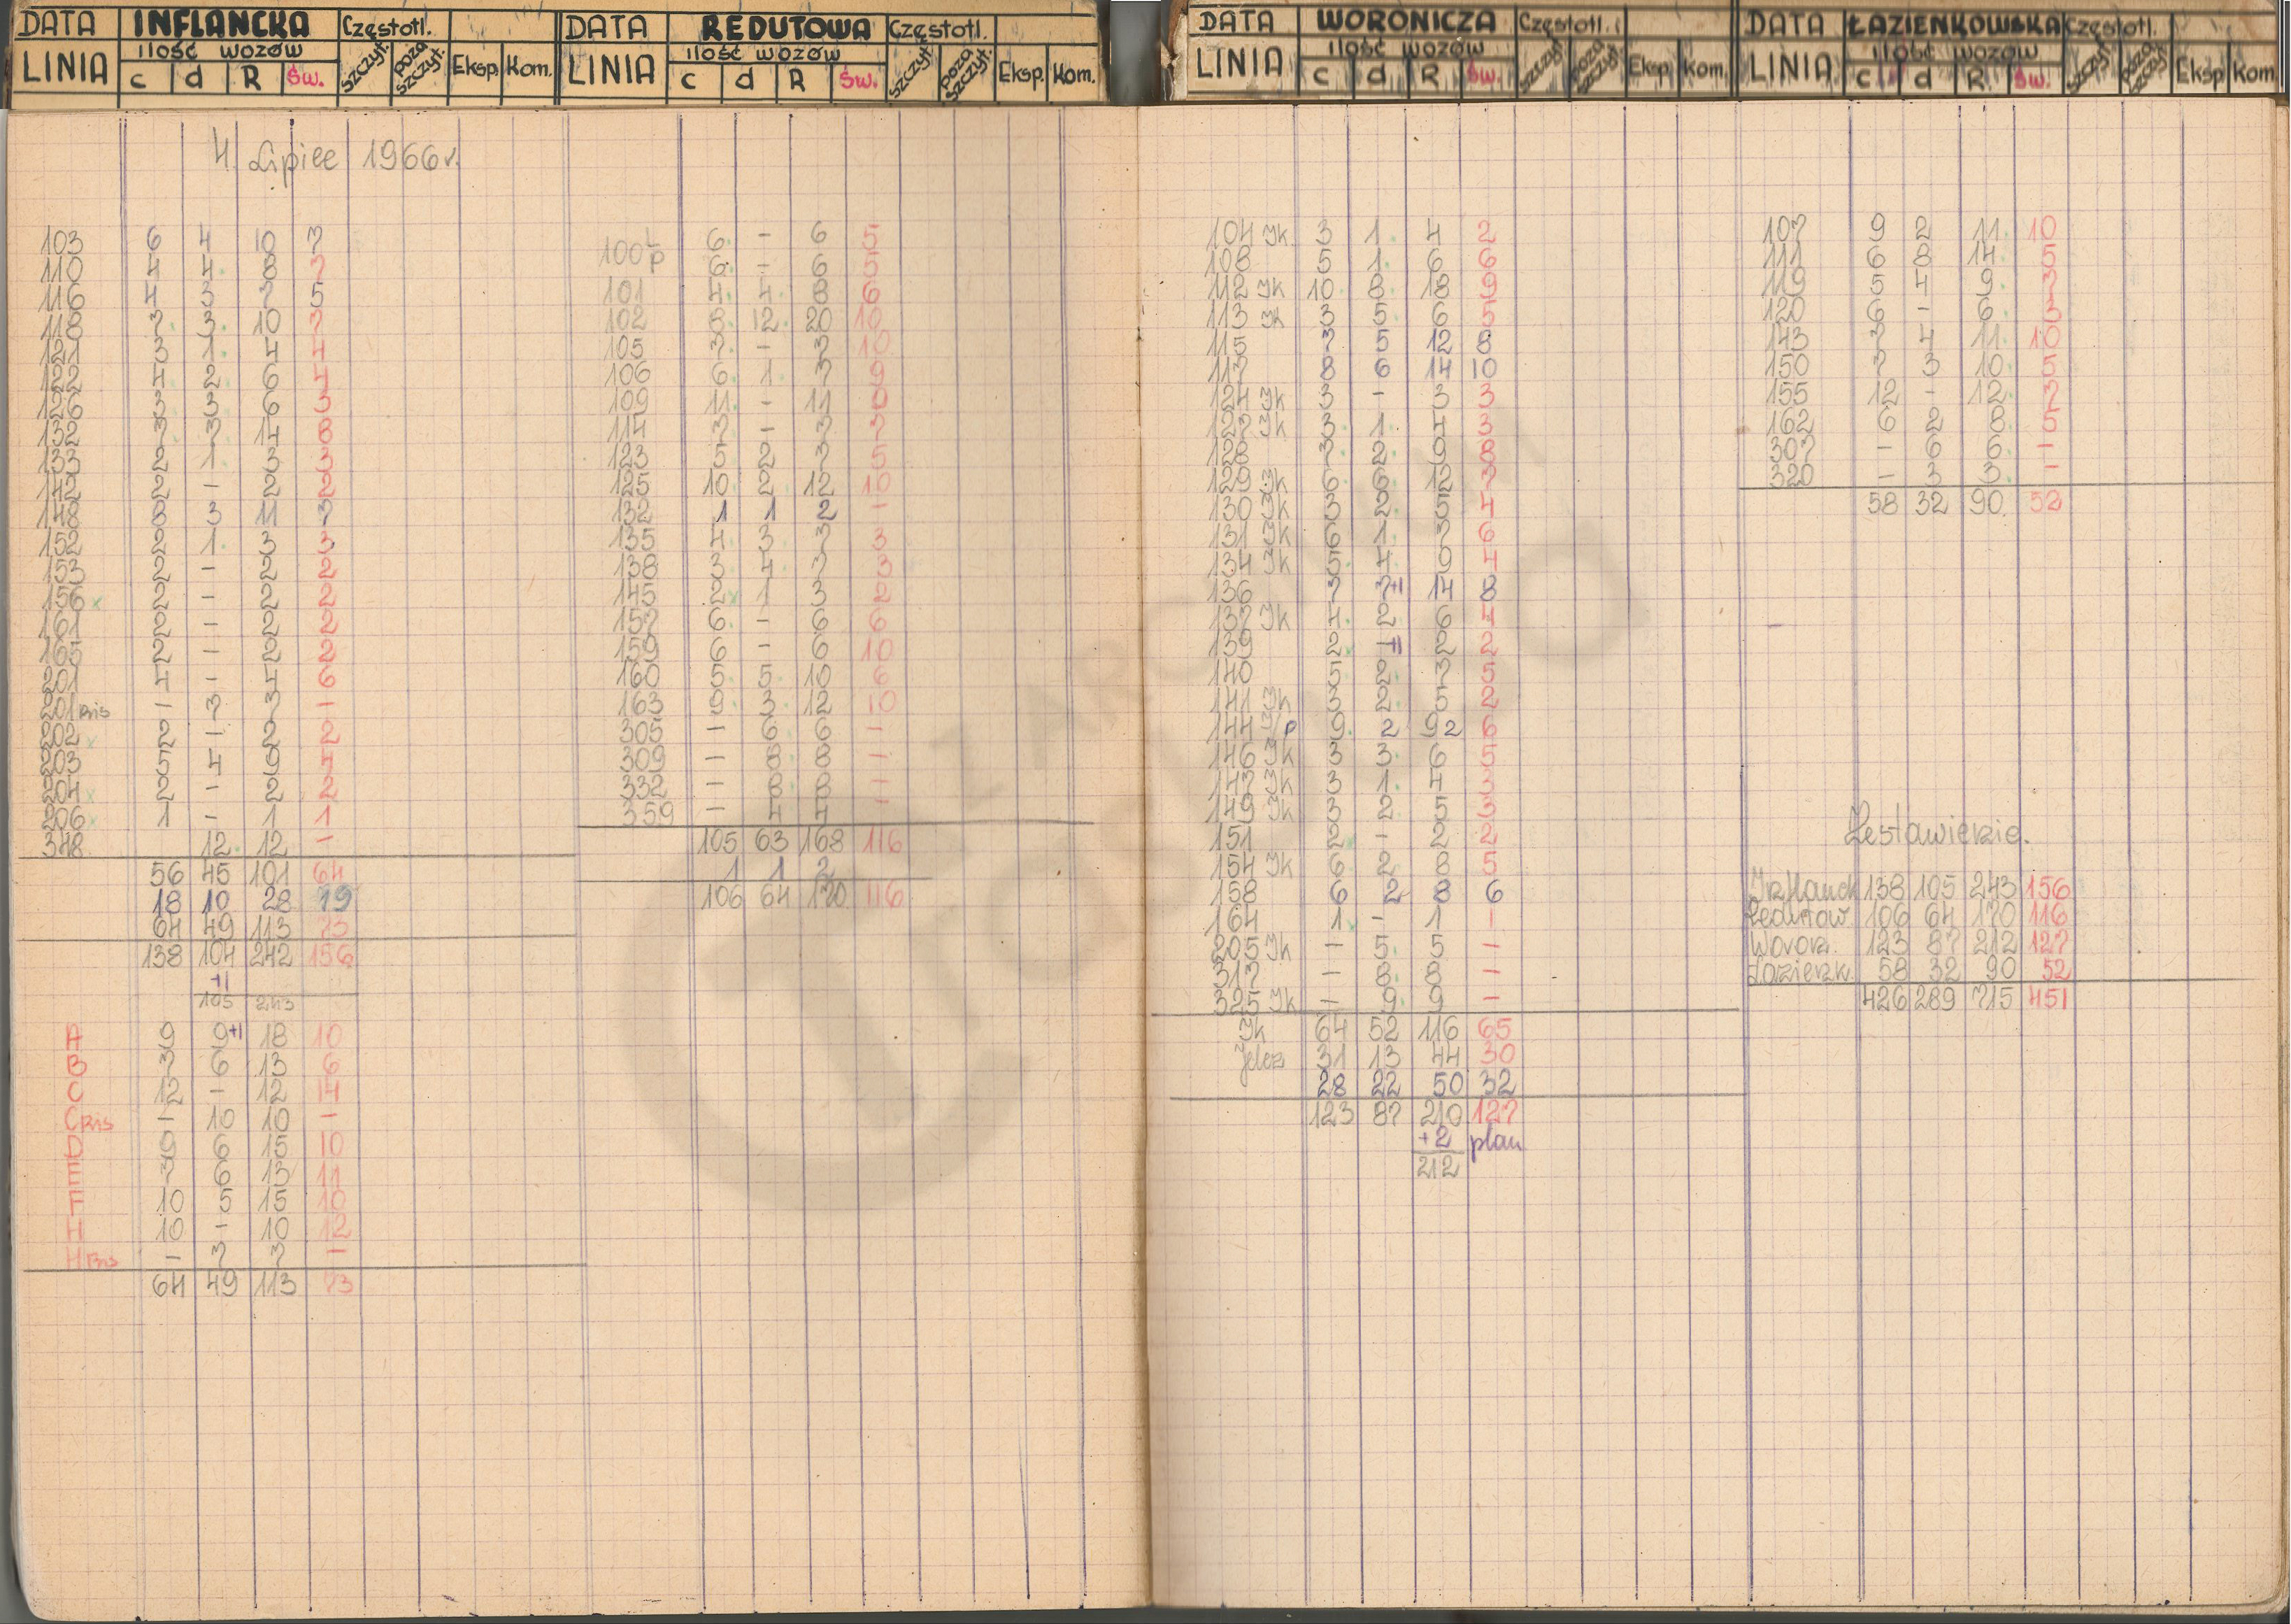 DATA INFLANCKA Częstotl.
LINIA ilość wozów szczyt. poza szczyt. Eksp. Kom.
c d R Św.
4 Lipiec 1966 r.
103 6 4 10 7
110 4 4 8 7
116 4 3 7 5
118 7 3 10 7
121 3 1 4 4
122 4 2 6 4
126 3 3 6 3
132 7 7 14 8
133 2 1 3 3
142 2 - 2 2
148 8 3 11 7
152 2 1 3 3
153 2 - 2 2
156 x 2 - 2 2
161 2 - 2 2
165 2 - 2 2
201 4 - 4 6
201 BIS - 7 7 -
202 x 2 - 2 2
203 5 4 9 4
204 x 2 - 2 2
206 x 1 - 1 1
348 12 12 -
56 45 101 64
18 10 28 19
64 49 113 73
138 104 242 156
+1
105 243
A 9 9+1 18 10
B 7 6 13 6
C 12 - 12 14
C BIS - 10 10 -
D 9 6 15 10
E 7 6 13 11
F 10 5 15 10
H 10 - 10 12
H BIS - 7 7 -
64 49 113 73
DATA REDUTOWA Częstotl.
LINIA ilość wozów szczyt. poza szczyt. Eksp. Kom.
c d R Św.
100 L 6 - 6 5
p 6 - 6 5
101 4 4 8 6
102 8 12 20 10
105 7 - 7 10
106 6 1 7 9
109 11 - 11
114 7 - 7 7
123 5 2 7 5
125 10 2 12 10
132 1 1 2 -
135 4 3 7 3
138 3 4 7 3
145 2 x 1 3 2
157 6 - 6 6
159 6 - 6 10
160 5 5 10 6
163 9 3 12 10
305 - 6 6 -
309 - 8 8 -
332 - 8 8 -
359 - 4 4 -
105 63 168 116
1 1 2
106 64 170 116
DATA WORONICZA Częstotl.
LINIA ilość wozów szczyt. poza szczyt. Eksp. Kom.
c d R Św.
104 Jk 3 1 4 2
108 5 1 6 6
112 Jk 10 8 18 9
113 Jk 3 5 6 5
115 7 5 12 8
117 8 6 14 10
124 Jk 3 - 3 3
127 Jk 3 1 4 3
128 7 2 9 8
129 Jk 6 6 12 7
130 Jk 3 2 5 4
131 Jk 6 1 7 6
134 Jk 5 4 9 4
136 7 7+1 14 8
137 Jk 4 2 6 4
139 2 -+1 2 2
140 5 2 7 5
141 Jk 3 2 5 2
144 J/p 9 2 9 2 6
146 Jk 3 3 6 5
147 Jk 3 1 4 3
149 Jk 3 2 5 3
151 2 - 2 2
154 Jk 6 2 8 5
158 6 2 8 6
164 1 - 1 1
205 Jk - 5 5 -
317 - 8 8 -
325 Jk - 9 9 -
Jk 64 52 116 65
Jelcz 31 13 44 30
28 22 50 32
123 87 210 127
+2 plan
212
DATA ŁAZIENKOWSKA Częstotl.
LINIA ilość wozów szczyt. poza szczyt. Eksp Kom.
c d R. Św.
107 9 2 11 10
111 6 8 14 5
119 5 4 9 7
120 6 - 6 3
143 7 4 11 10
150 7 3 10 5
155 12 - 12 7
162 6 2 8 5
307 - 6 6 -
320 - 3 3 -
58 32 90 52
Zestawienie.
Inflanck 138 105 243 156
Redutow. 106 64 170 116
Woron. 123 87 212 127
Łazienk. 58 32 90 52
426 289 715 451